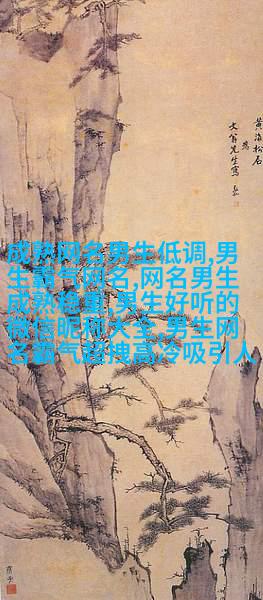 黃海松石
為
成熟网名男生低调,男
生霸气网名,网名男生
成熟稳重,男生好听的
微信昵称大全,男生网
名霸气超拽高冷吸引人